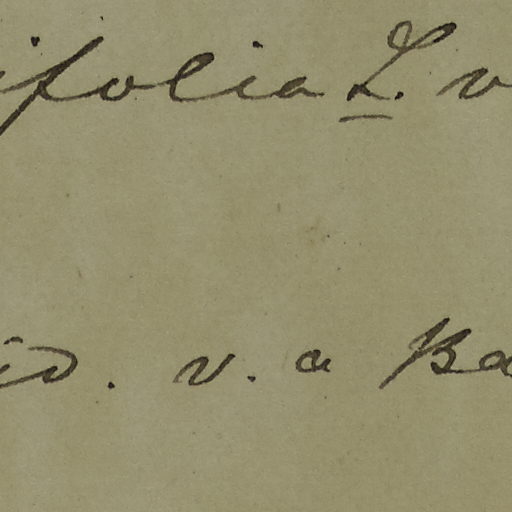 ifolia L. v
id. v. a Ba